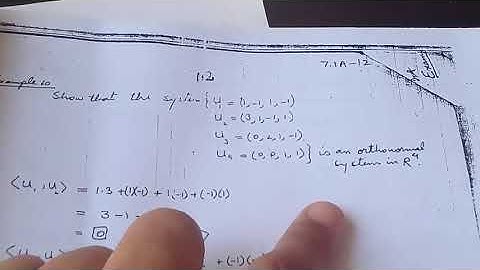 7.1A-12
1.2
Example 10
Show that the system { U₁ = (1, -1, 1, -1)
U₂ = (3, 1, -1, 1)
U₃ = (0, 2, 1, -1)
U₄ = (0, 0, 1, 1) } is an orthonormal
system in R⁴.
⟨U₁, U₂⟩ = 1.3 + (1)(-1) + 1(-1) + (-1)(1)
= 3 - 1 -
= 0
+ (-1)(